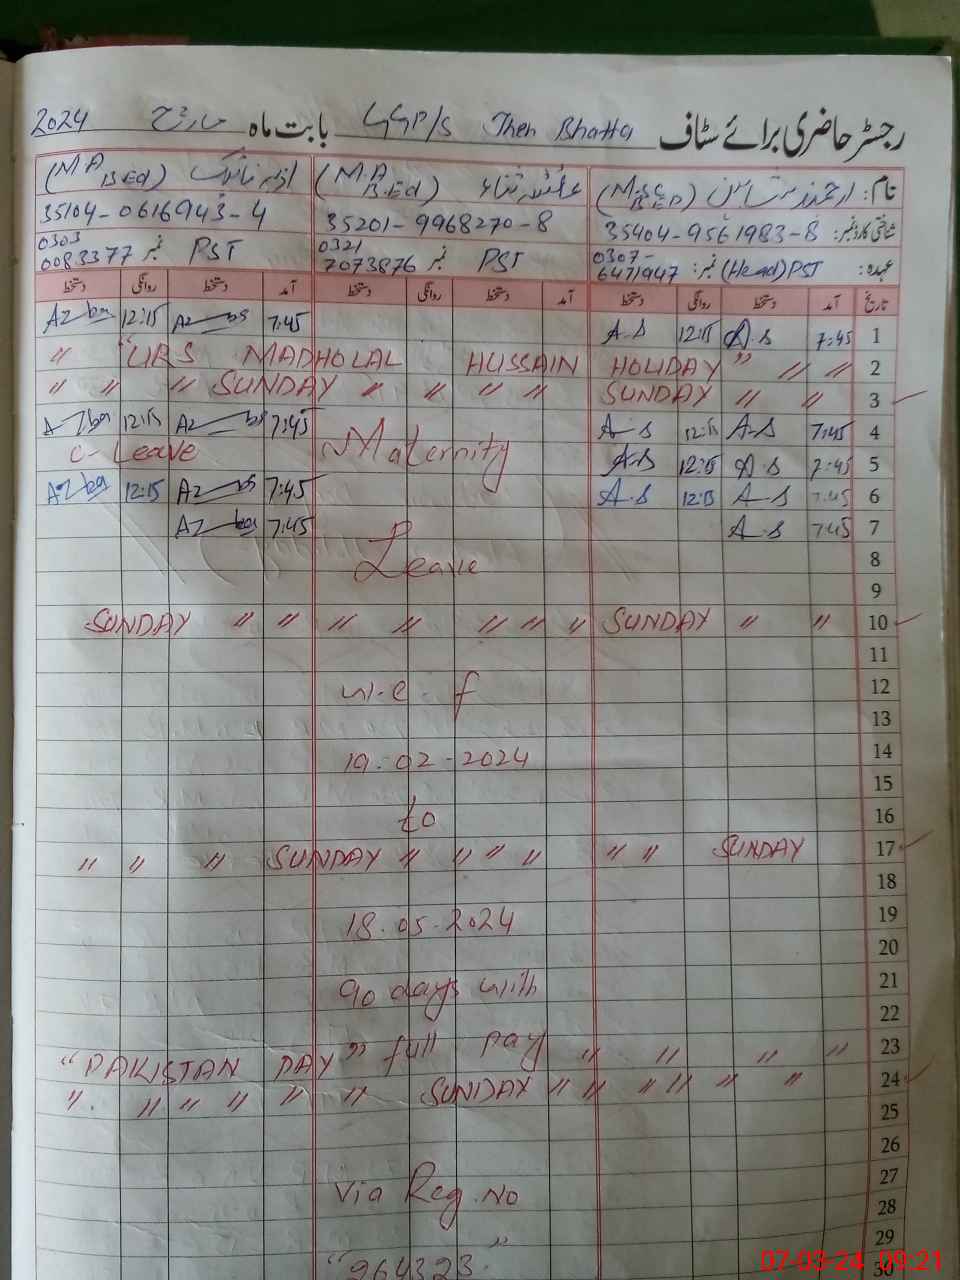 رجسٹر حاضری برائے سٹاف GGP/S Then Bhatta بابت ماہ مارچ 2024
نام: (M.SC B.ED) عائشہ ثناء (M.A B.Ed) (M.A B.Ed)
شناختی کارڈ نمبر: 35404-9561983-8 35201-9968270-8 35104-0616943-4
عہدہ: (Head) PST نمبر: 0307-6471947 PST نمبر 0321 7073876 PST نمبر 0303 0083377
تاریخ آمد دستخط روانگی دستخط آمد دستخط روانگی دستخط آمد دستخط روانگی دستخط
1 7:45 A.S 12:15 A.S 7:45 12:15
2 "URS MADHOLAL HUSSAIN HOLIDAY" " "
3 " " " SUNDAY " " " " SUNDAY " "
4 7:45 A.S 12:15 A.S 7:45 12:15
5 7:45 A.S 12:15 A.S Maternity C-Leave
6 7:45 A.S 12:15 A.S 7:45 12:15
7 7:45 A.S 7:45
8 Leave
9
10 SUNDAY " " " " " " " SUNDAY " "
11
12 w.e.f
13
14 19.02-2024
15
16 to
17 " " " SUNDAY " " " " " " SUNDAY
18
19 18.05.2024
20
21 90 days with
22
23 "PAKISTAN DAY" full pay " " " "
24 " " " " " " SUNDAY " " " " " "
25
26
27 Via Reg. No
28
29
30 "264323"
07-03-24 09:21